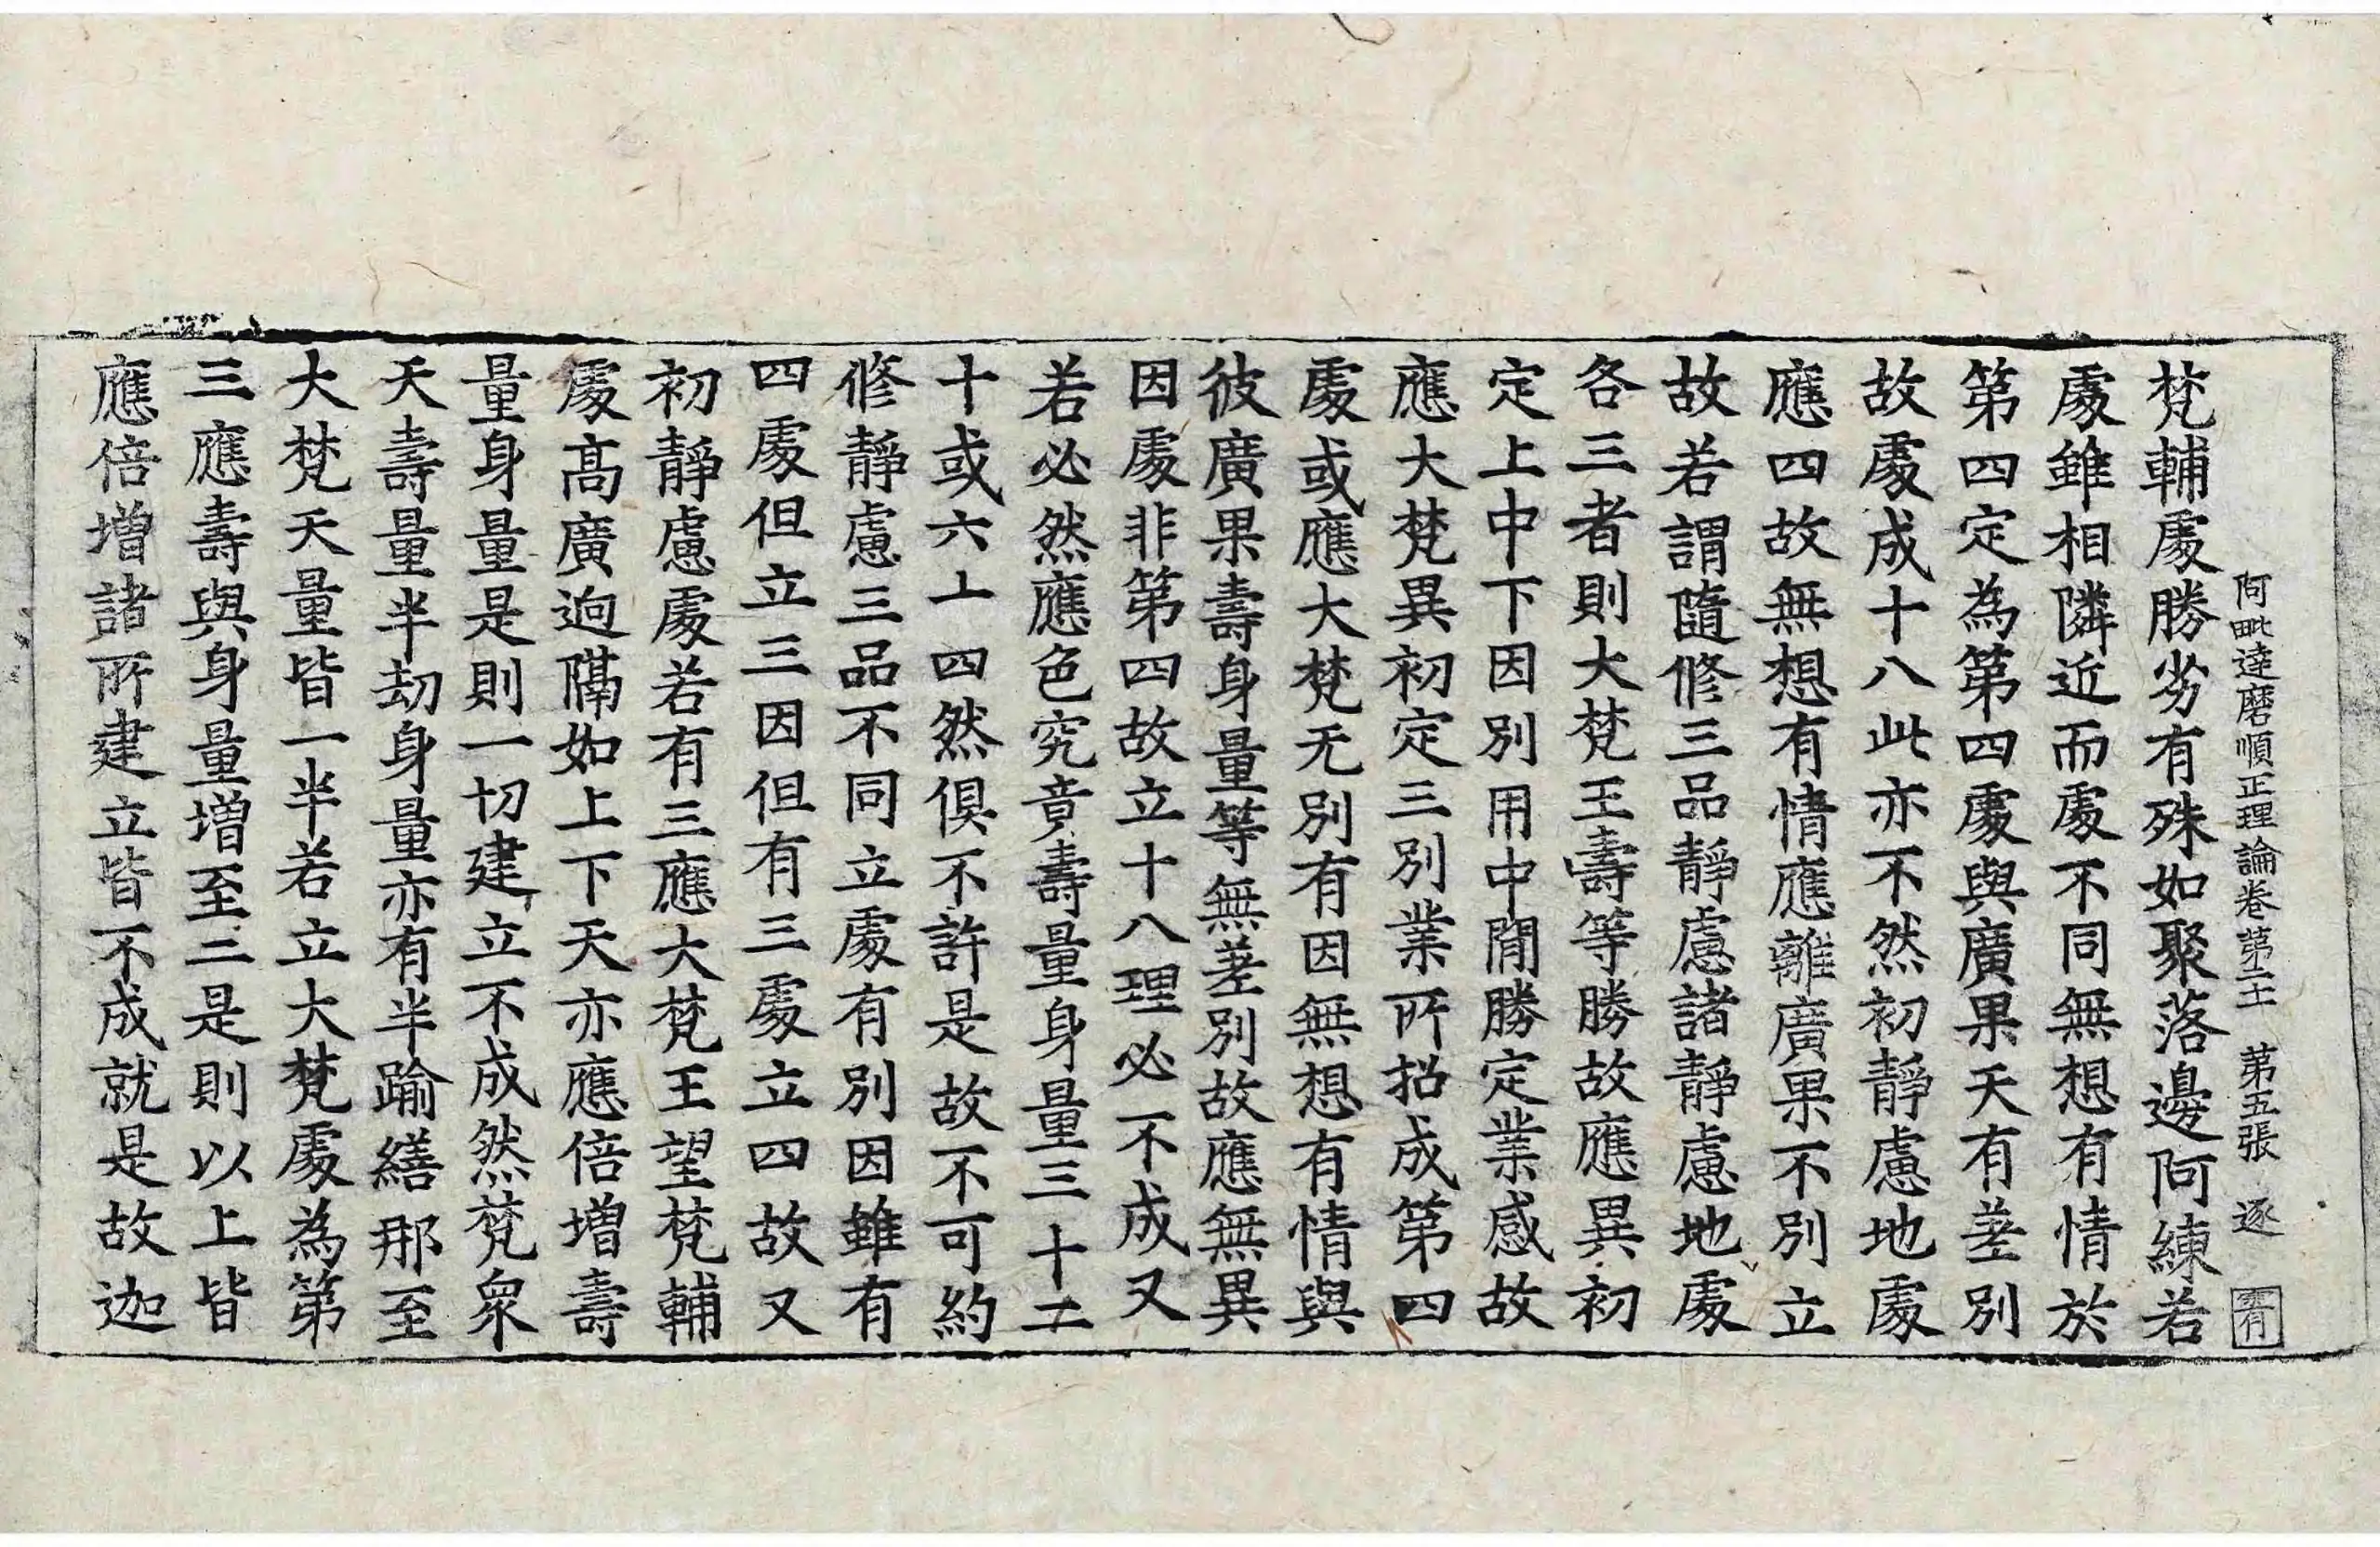 阿毗達磨順正理論卷第二十一 第五張 逐
梵輔處勝劣有殊如聚落邊阿練若
處雖相隣近而處不同無想有情於
第四定為第四處與廣果天有差別
故處成十八此亦不然初靜慮地處
應四故無想有情應離廣果不別立
故若謂隨修三品靜慮諸靜慮地處
各三者則大梵王壽等勝故應異初
定上中下因別用中閒勝定業感故
應大梵異初定三別業所招成第四
處或應大梵无別有因無想有情與
彼廣果壽身量等無差別故應無異
因處非第四故立十八理必不成又
若必然應色究竟壽量身量三十二
十或六上四然俱不許是故不可約
修靜慮三品不同立處有別因雖有
四處但立三因但有三處立四故又
初靜慮處若有三應大梵王望梵輔
處高廣逈隔如上下天亦應倍增壽
量身量是則一切建立不成然梵衆
天壽量半劫身量亦有半踰繕那至
大梵天量皆一半若立大梵處為第
三應壽與身量增至二是則以上皆
應倍增諸所建立皆不成就是故迦